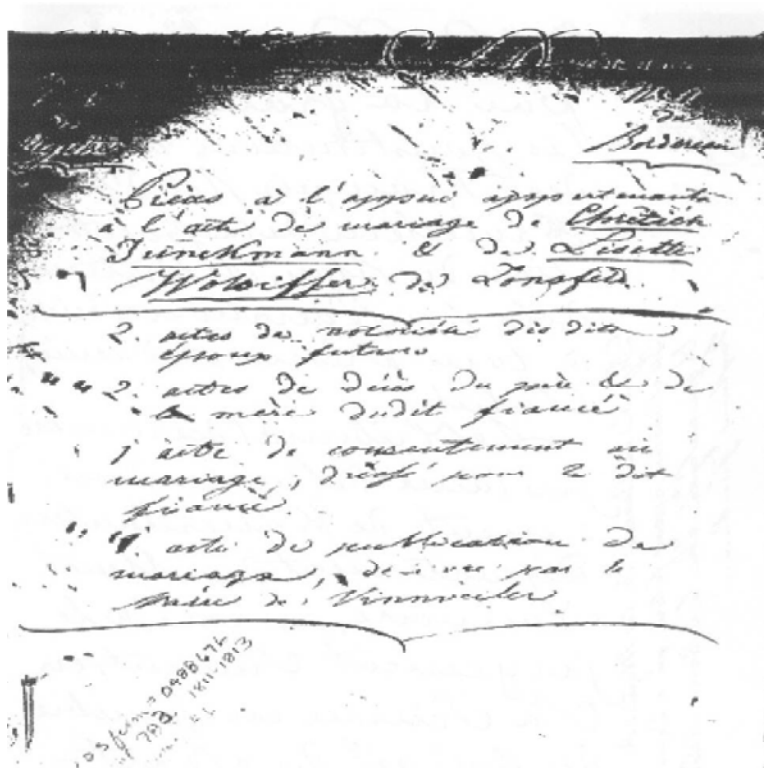 du
Bordereau
Pièces à l'appui appartenants
à l'acte de mariage de Chretien
Junckmann & de Lisette
Wolsiffer de Lonsfeld
2. actes de notorieté des dits
époux futurs
2. actes de décès du père & de
la mère dudit fiancé
1 acte de consentement au
mariage, pour le dit
fiancé.
1. acte de publication de
mariage, par le
Maire de Winnweiler
0488676
1811-1813